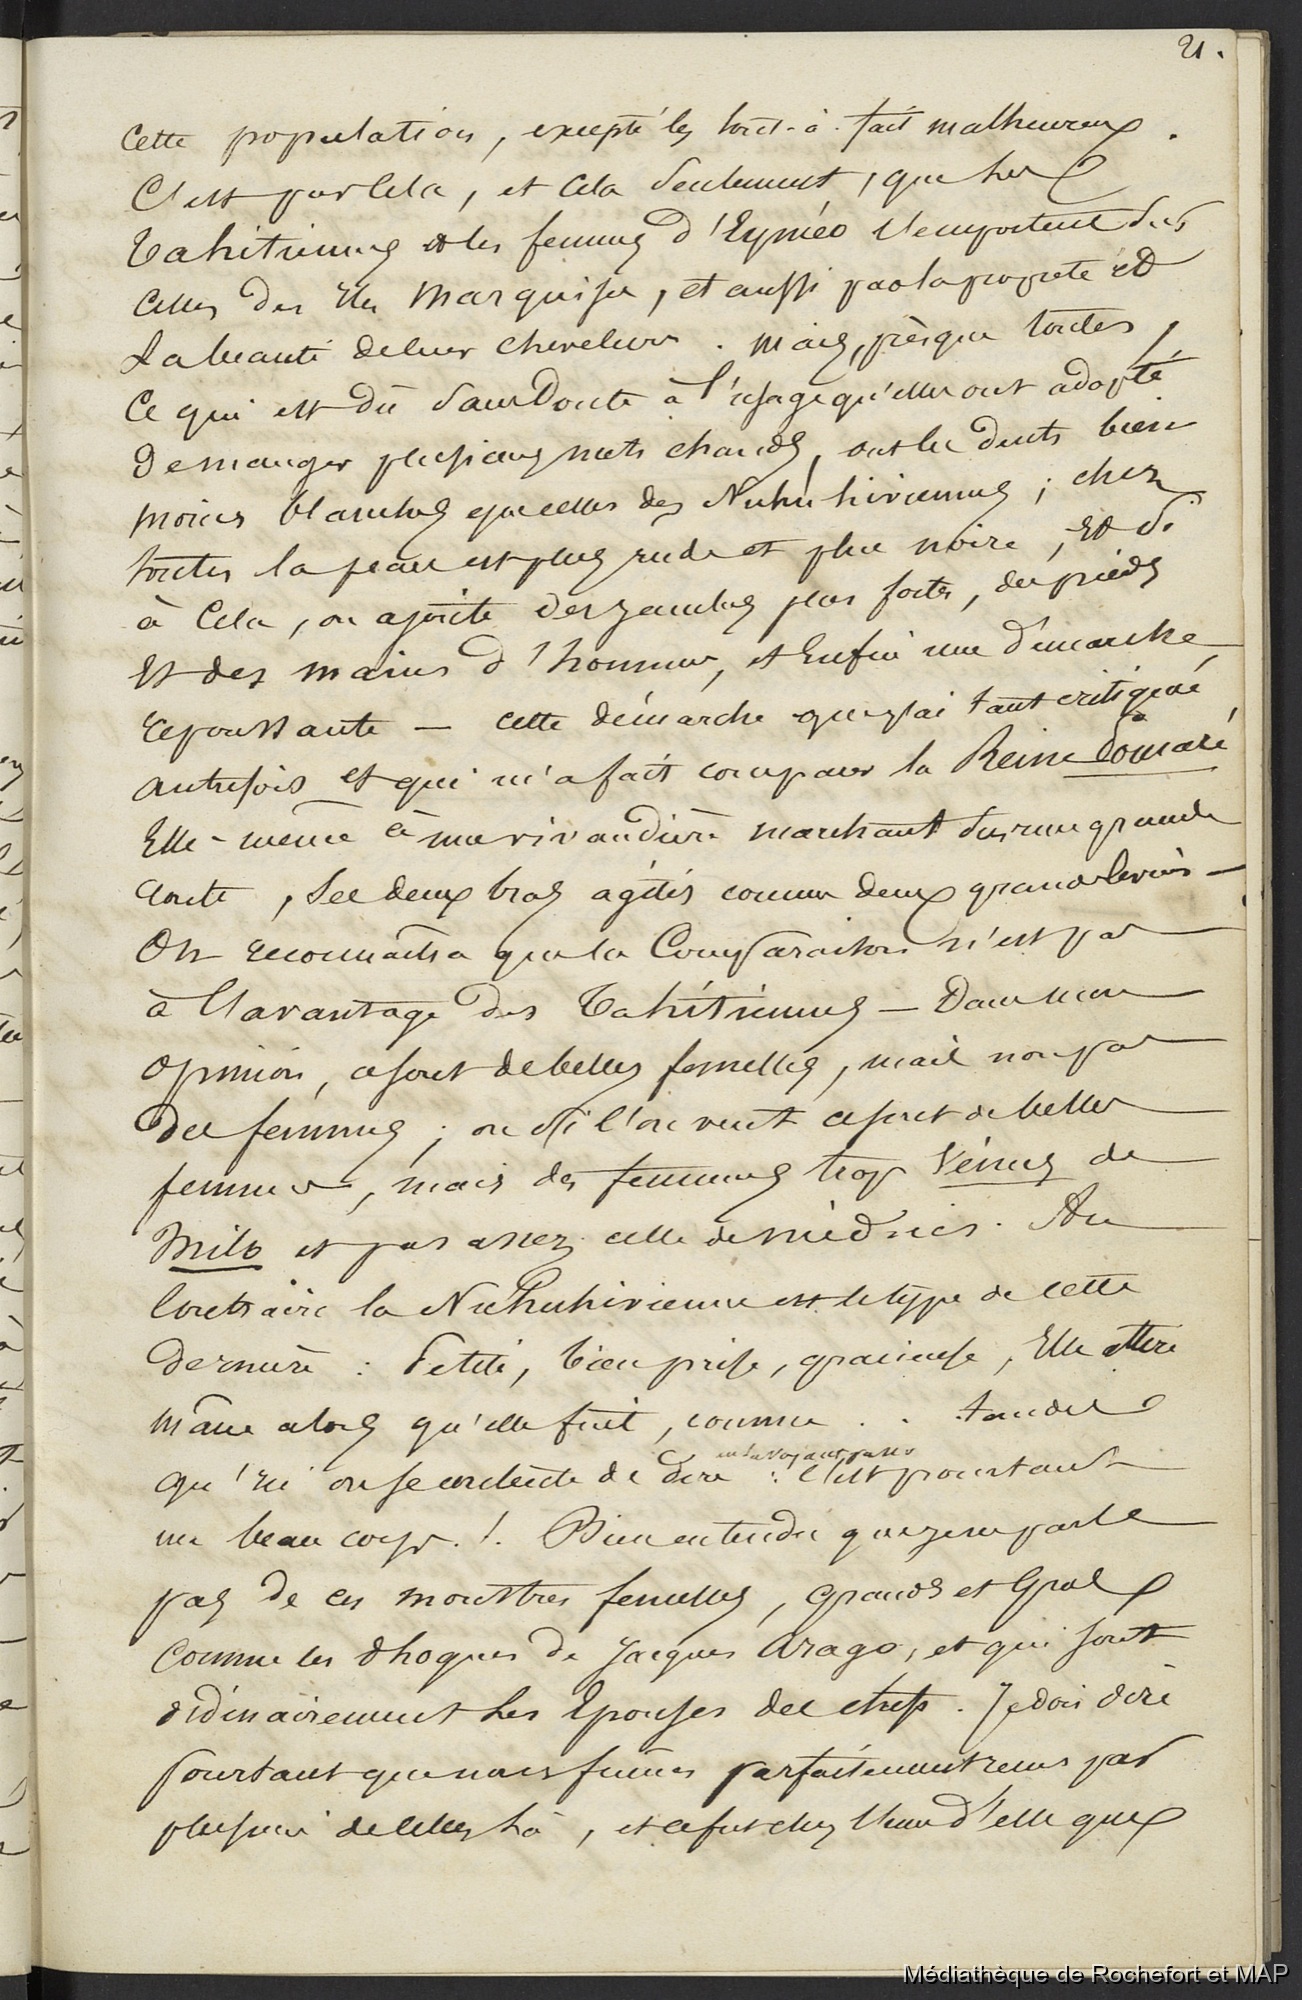 21.
Cette population, excepté les tout-à-fait malheureux.
C'est par cela, et cela seulement, que les
Tahitiennes et les femmes d'Eyméo l'emportent sur
celles des Iles Marquises, et aussi par la propreté et
La beauté de leur chevelure. Mais, presque toutes,
Ce qui est dû sans Doute à l'usage qu'elles ont adopté
De manger plusieurs mets chauds, ont les dents bien
moins blanches que celles des Nukuhiviennes; chez
toutes la peau est plus rude et plus noire, Et si
à Cela, on ajoute des jambes plus fortes, des pieds
Et des mains d'hommes, et Enfin une démarche
repoussante — cette démarche que j'ai tant critiquée
autrefois et qui m'a fait comparer la Reine Pomaré
Elle-même à une vivandière marchant sur une grande
route, ses deux bras agités comme deux grands leviers —
On reconnaitra que la Comparaison n'est pas
à l'avantage des Tahitiennes — Dans mon
opinion, ce sont de belles femelles, mais non pas
des femmes; ou si l'on veut ce sont de belles
femmes, mais des femmes trop Vénus de
Milo et pas assez celle de Médicis. Au
Contraire la Nukuhivienne est le type de cette
dernière : Petite, bien prise, gracieuse, Elle attire
même alors qu'elle fuit, comme . . tandis
en la voyant passer
qu'ici on se contente de dire : c'est pourtant
un beau corps.! Bien entendu que je ne parle
pas de ces monstres femelles, grands et Gros
Comme les phoques de Jacques Arago, et qui sont
ordinairement les Epouses des chefs. Je dois dire
pourtant que nous fûmes parfaitement reçus par
plusieurs de celles là, et ce fut chez l'une d'elle que
Médiathèque de Rochefort et MAP